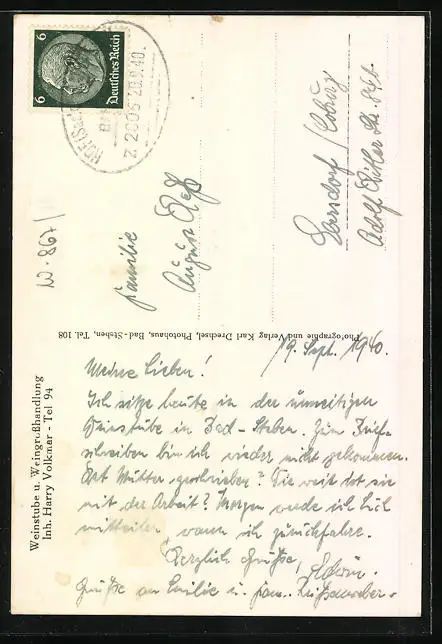 Weinstube u. Weingroßhandlung
Inh. Harry Volkmar - Tel 94
Photographie und Verlag Karl Drechsel, Photohaus, Bad-Steben, Tel. 108
Deutsches Reich
6 6
HOF (SAALE)
Z. 2006 20.9.40.
W. 867/
19. Sept. 1940.
Meine Lieben!
Ich sitze heute in der
Weinstube in Bad-Steben. Zum Brief-
schreiben bin ich wieder nicht gekommen.
Hat Mutter geschrieben? Wie weit ist sie
mit der Arbeit? Morgen werde ich Euch
mitteilen, wann ich zurückfahre.
Herzlich Grüße, Edwin.
Grüße an Emilie u. Fam.
Familie
August
/Coburg
Adolf Hitler Str.